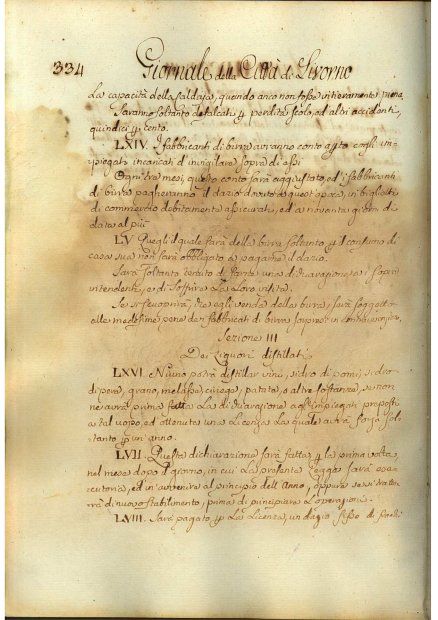 334 Giornale della Città di Livorno
La capacità della Caldaja, quando anco non fosse intieramente piena,
Saranno soltanto defalcati p perdita scolo, ed altri accidenti,
quindici p cento.
LXIV. I fabbricanti di birra avranno conto apto cogli im-
piegati incaricati d'invigilare sopra di essi
Ogni tre mesi, questo conto sarà aggiustato, ed i fabbricanti
di birra pagheranno il dazio dovuto a quest'epoca, in biglietti
di commercio debitamente assicurati, ed a novanta giorni di
data al più
LV Quegli il quale farà della birra soltanto p il consumo di
casa sua non sarà obbligato a pagarne il dazio.
Sarà soltanto tenuto di farne una dichiarazione ai sopri
intendenti, e di soffrire la loro visita.
Se si scuoprirà, che egli venda della birra, sarà soggetto
alle medesime pene dei fabbricanti di birra sorpresi in contravvenzione.
Sezione III
Dei Liquori distillati
LXVI. Niuno potrà distillar vini, sidro di pomi, sidro
di pere, grano, melassa, ciriege, patate, o altre sostanze, se non
ne avrà prima fatta la dichiarazione agl'impiegati preposti
a tal uopo, ed ottenuta una Licenza la quale avrà forza sol-
tanto p un anno.
LVII. Questa dichiarazione sarà fatta p la prima volta,
nel mese dopo il giorno, in cui la presente Legge sarà ese-
cutoria, ed in avvenire al principio dell'Anno, oppure se si tratte-
rà di nuovo stabilimento, prima di principiare l'operazioni.
LVIII. Sarà pagato p La Licenza, un dazio fisso di